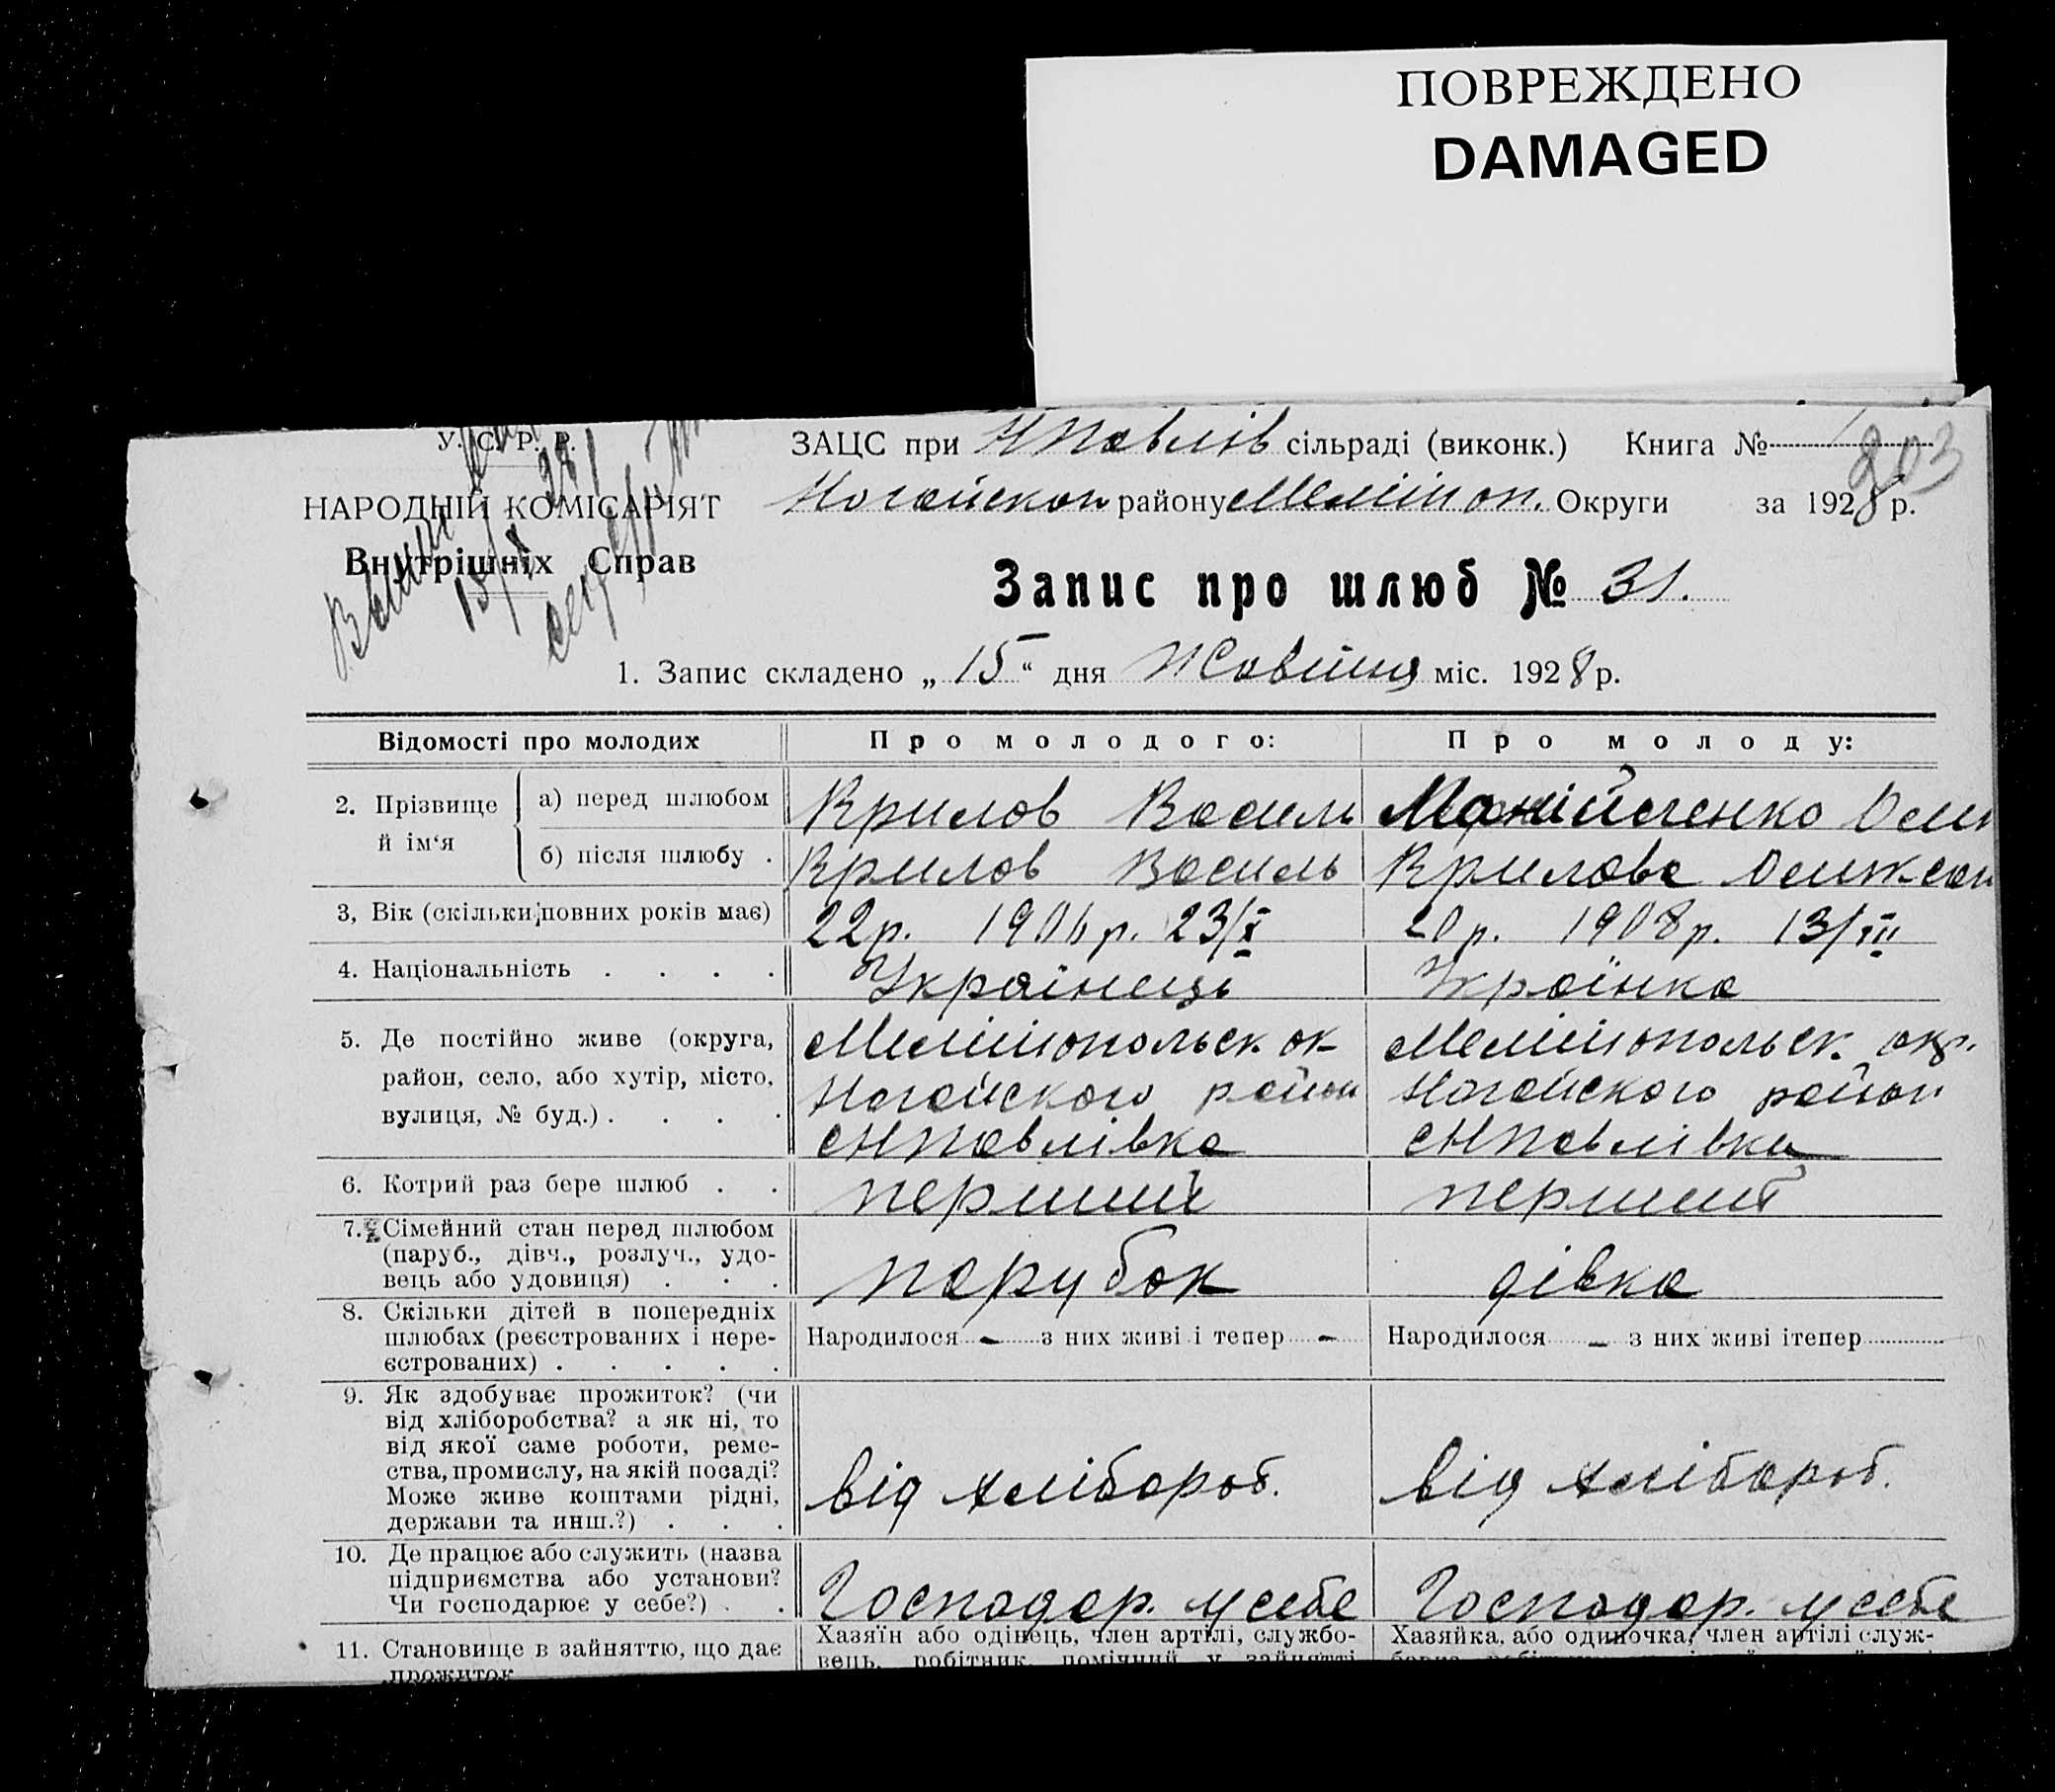 ПОВРЕЖДЕНО
DAMAGED
У. С. Р. Р.
НАРОДНІЙ КОМІСАРІЯТ
Внутрішніх Справ
ЗАЦС при Нпавлів сільраді (виконк.) Книга №
203
Ногайськ району Меліtop. Округи за 1928 р.
Запис про шлюб № 31.
1. Запис складено „15“ дня Жовтня міс. 1928 р.
Відомості про молодих Про молодого: Про молоду:
2. Прізвище й ім‘я а) перед шлюбом Крилов Василь
б) після шлюбу . Крилов Василь Крилова
3, Вік (скільки повних років має) 22р. 1906 р. 23/X 20 р. 1908 р. 13/III
4. Національність . . . . Українець Українка
5. Де постійно живе (округа, Мелітопольск. ок Мелітопольск. окр.
район, село, або хутір, місто, Ногайского район Ногайского район
вулиця, № буд.) . . . . с Нпавлівка с Нпавлівка
6. Котрий раз бере шлюб . . перший перший
7. Сімейний стан перед шлюбом
(паруб., дівч., розлуч., удо-
вець або удовиця) . . . парубок дівка
8. Скільки дітей в попередніх
шлюбах (реєстрованих і нере- Народилося – з них живі і тепер – Народилося – з них живі ітепер
єстрованих) . . . . .
9. Як здобуває прожиток? (чи
від хліборобства? а як ні, то
від якої саме роботи, реме-
ства, промислу, на якій посаді?
Може живе коштами рідні, від хлібороб. від хлібороб.
держави та инш.?) . . .
10. Де працює або служить (назва
підприємства або установи?
Чи господарює у себе?) . . Господар. у себе Господар. у себе
11. Становище в зайняттю, що дає Хазяїн або одінець, член артілі, службо- Хазяйка, або одиночка, член артілі служ-
прожиток вець, робітник, помічний у зайнятті